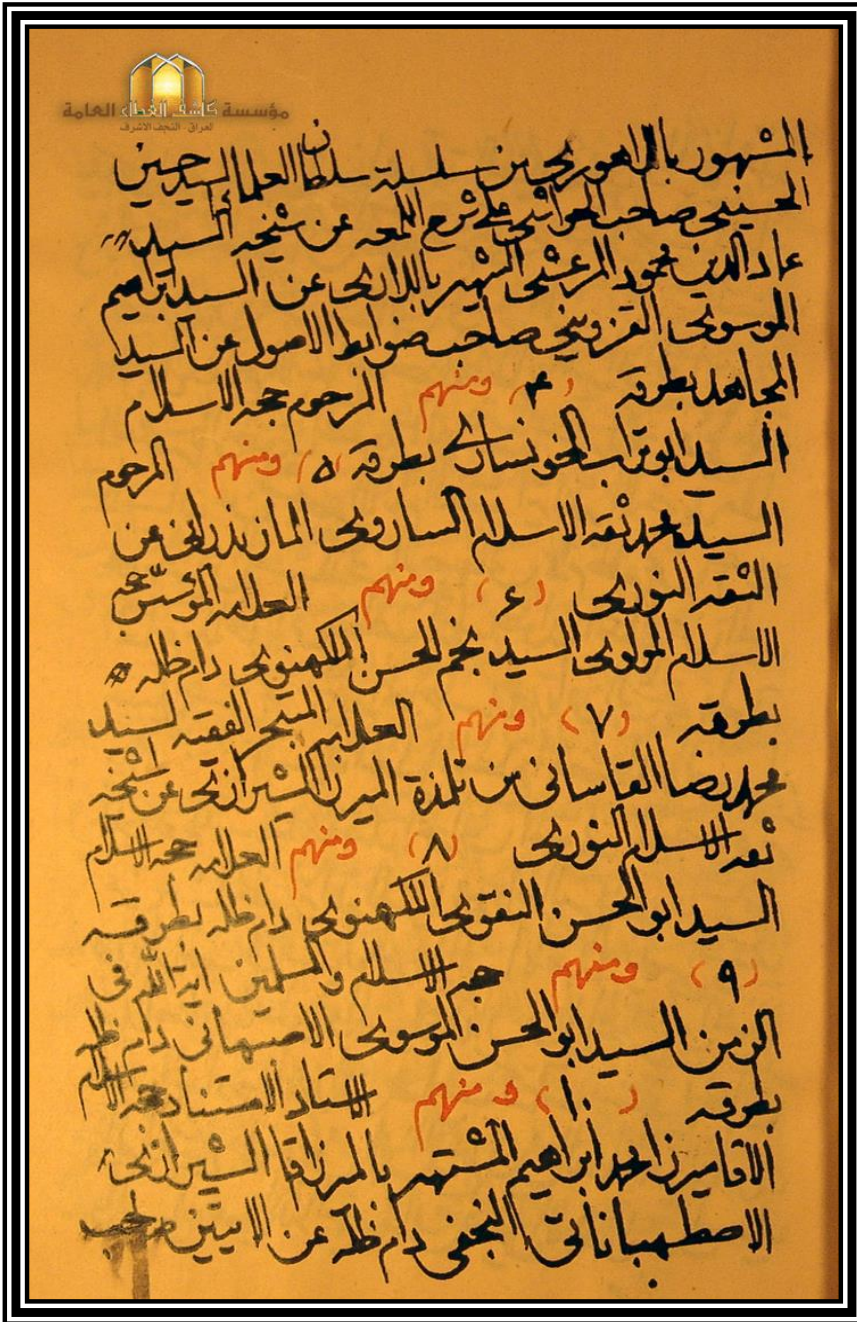 مؤسسة كاشف الغطاء العامة
العراق - النجف الاشرف
المشهور باللاهوري من سلسلة سلطان العلماء السيد حسين
الحسيني صاحب الحواشي على شرح اللمعه عن شيخه السيد
عماد الدين محمود المرعشي الشهير عن السيد ابراهيم
الموسوي القزويني صاحب ضوابط الاصول عن السيد
المجاهد بطرقه (۴) ومنهم المرحوم حجه الاسلام
السيد ابو تراب الخونساري بطرقه (۵) ومنهم المرحوم
السيد محمد ثقه الاسلام الساروي المازندراني عن
الثقه النوري (۶) ومنهم العلامه المؤسس حجه
الاسلام المولوي السيد نجم الحسن اللكهنوي دام ظله
بطرقه (۷) ومنهم العلامه المتبحر الفقيه السيد
محمد رضا القاساني من تلمذة الميرزا الشيرازي عن شيخه
ثقه الاسلام النوري (۸) ومنهم العلامه حجه الاسلام
السيد ابو الحسن النقوي اللكهنوي دام ظله بطرقه
(۹) ومنهم حجه الاسلام والمسلمين اية الله في
الزمن السيد ابو الحسن الموسوي الاصبهاني دام ظله
بطرقه (۱۰) ومنهم الاستاد الاستناد حجه الاسلام
الاقا ميرزا محمد ابراهيم المشتهر بالميرزا اقا الشيرازي
الاصطهباناتي النجفي دام ظله عن الايتين صاحب